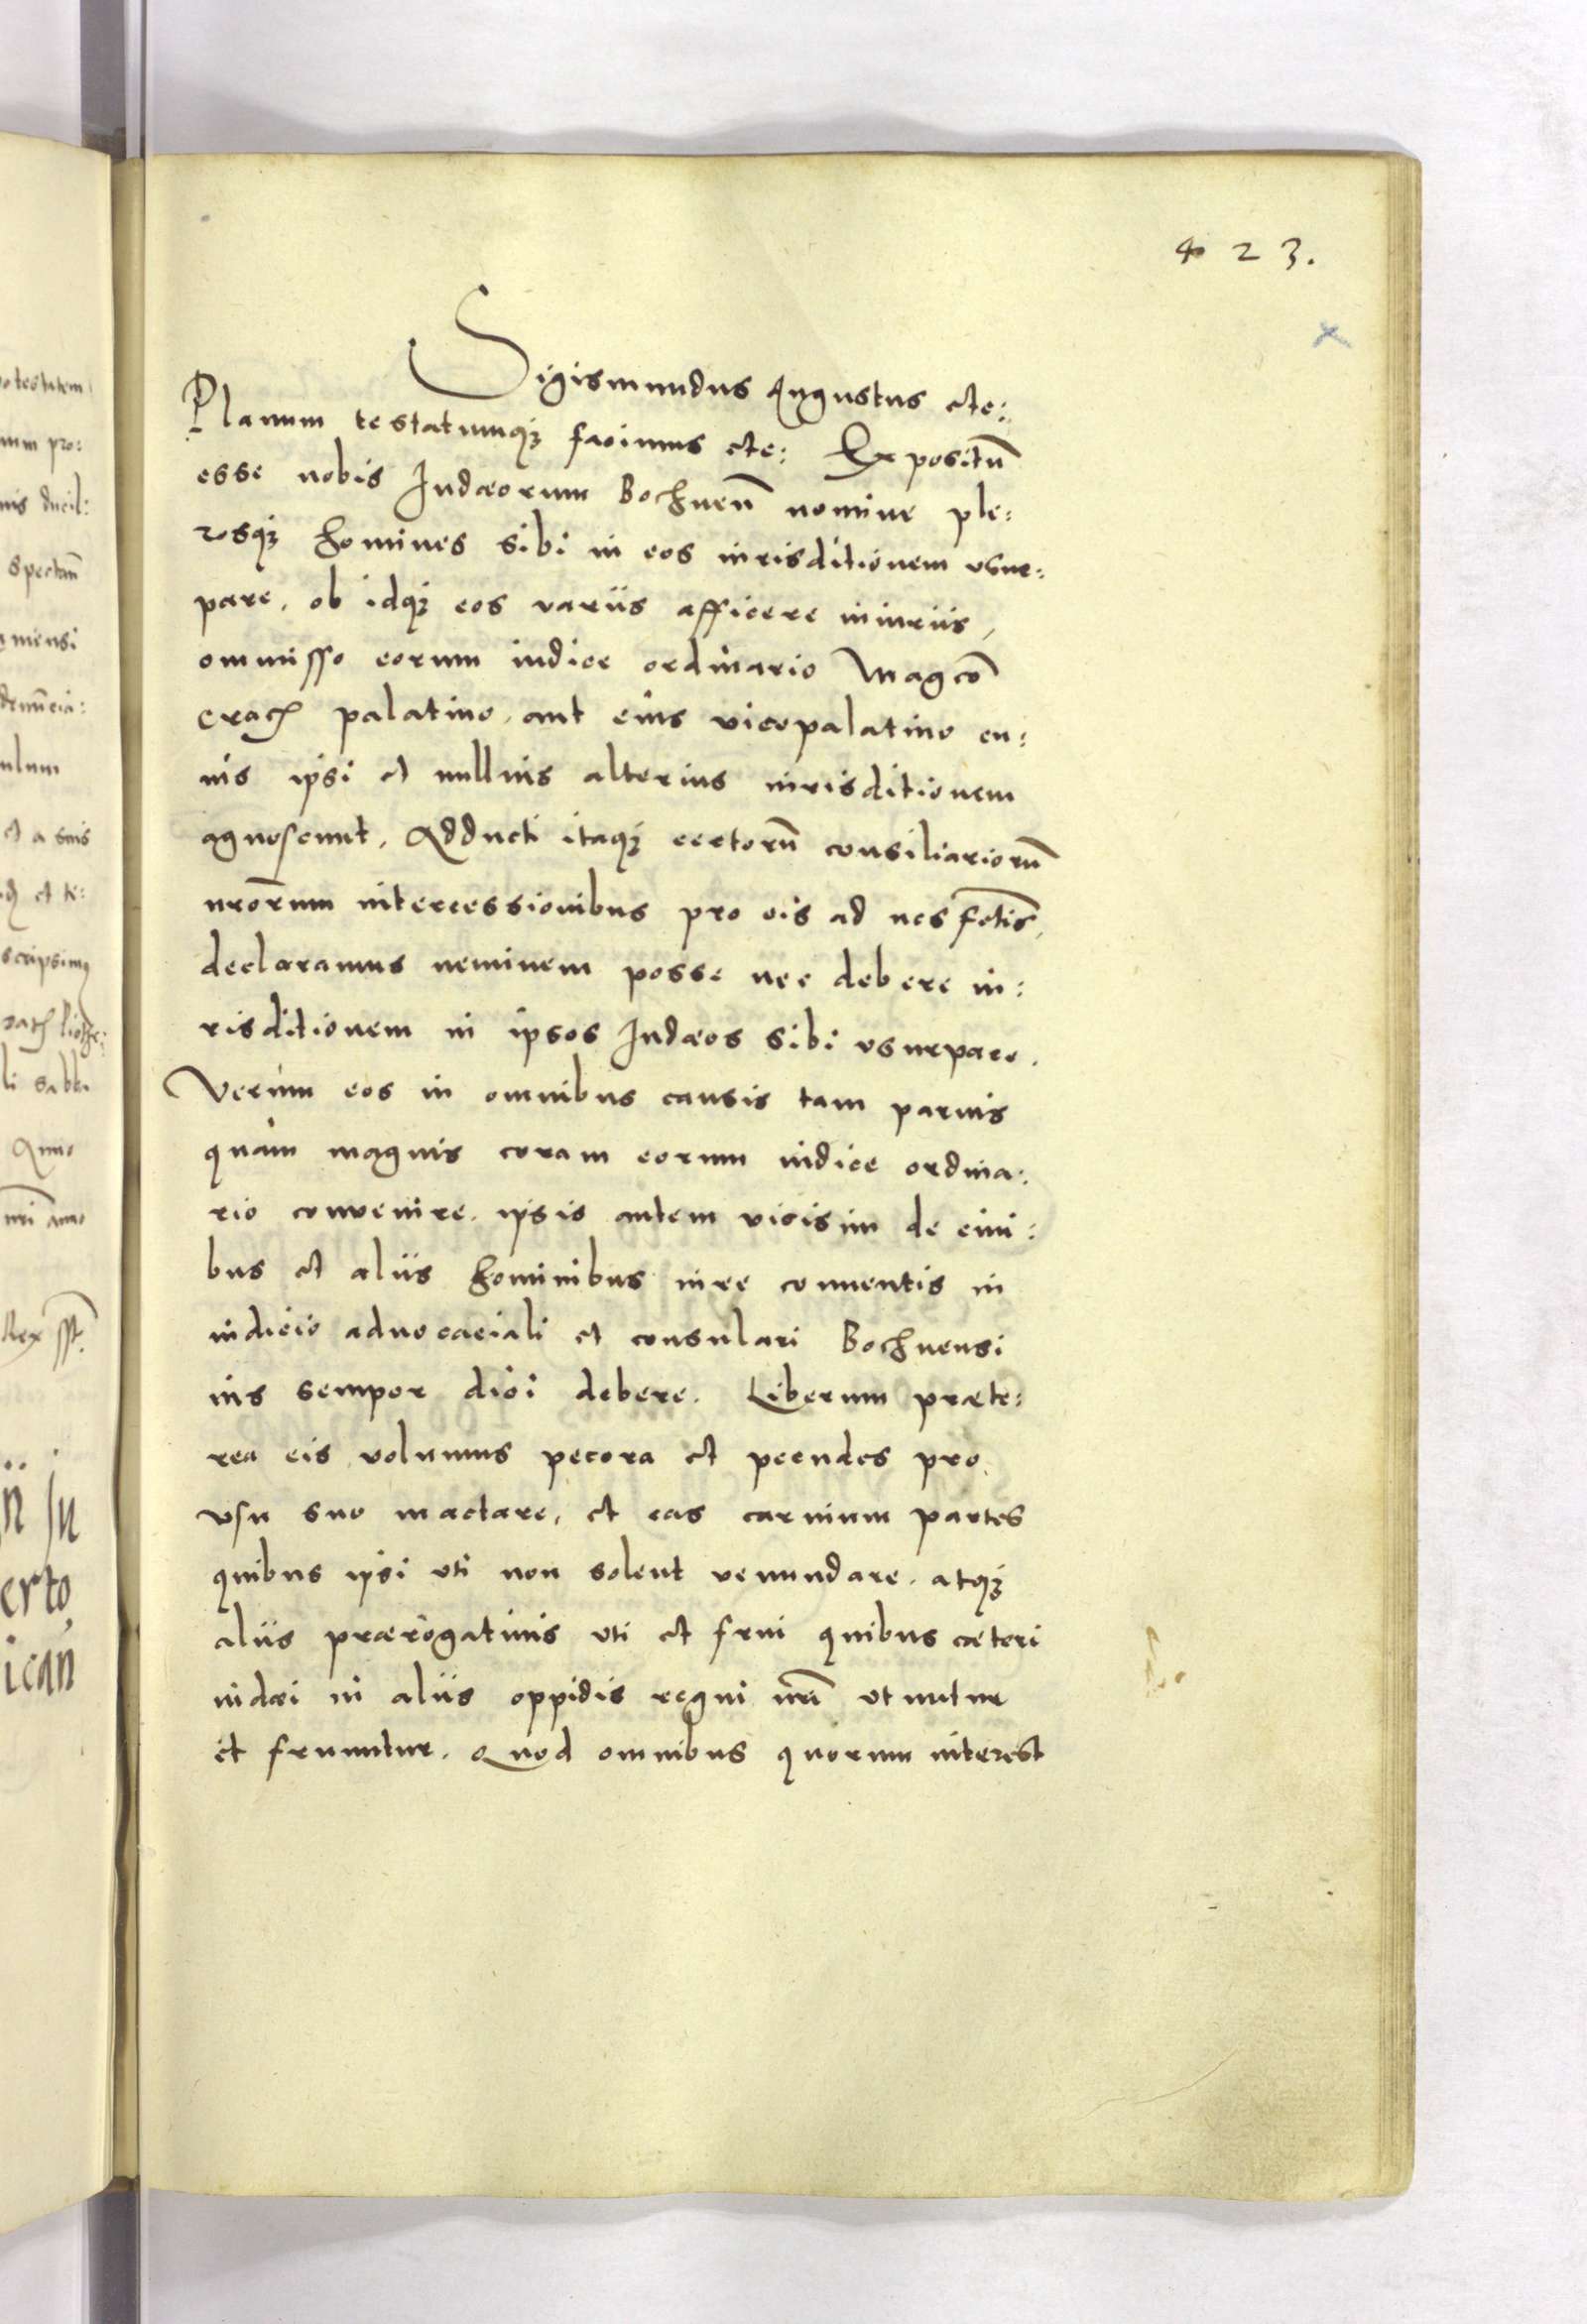 423.
Sigismundus Augustus etc:
Planum testatumq₃ facimus etc: Expositũ
esse nobis Iudæorum Bochnen̄ nomine ple:
rosq₃ homines sibi in eos iurisditionem usur:
pare, ob idq₃ eos variis afficere iniuriis,
ommisso eorum iudice ordinario Mag͞co
Crac̄ palatino, aut eius vicepalatino cu:
ius ipsi et nullius alterius iurisditionem
agnoscunt, Adducti itaq₃ certorũ consiliariorũ
nr̃orum intercessionibus pro eis ad nos fctis̃,
declaramus neminem posse nec debere iu:
risditionem in ipsos Iudæos sibi usurpare.
Verùm eos in omnibus causis tam paruis
quàm magnis coram eorum iudice ordina:
rio convenire. ipsis autem vicisim de ciui:
bus et aliis hominibus iure conuentis in
iudicio aduocaciali et consulari Bochnensi
ius semper dici debere. Liberum præte:
rea eis volumus pecora et pecudes pro
usu suo mactare, et eas carnium partes
quibus ipsi uti non solent venundare. atq₃
aliis prærogatiuis uti et frui quibus cæteri
iudæi in aliis oppidis regni nr̃i utuntur
et fruuntur. Quod omnibus quorum interest